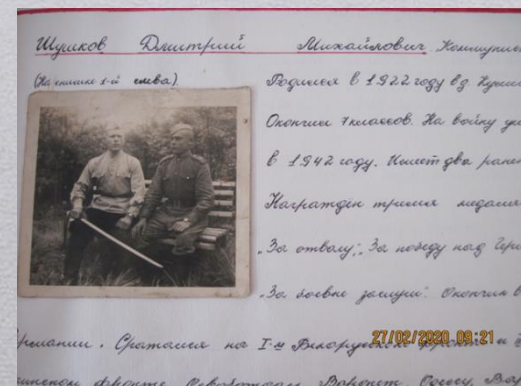 Шушков Дмитрий Михайлович Коммунис
(На снимке 1-й слева).
Родился в 1922 году в д.
Окончил 7 классов. На войну у
в 1942 году. Имеет два ранен
Награждён тремя медаля
"За отвагу", "За победу над Гер
"За боевые заслуги". Окончил в
Германии. Сражался на I-м Белорусском фронте и
фронте. Освобождал Воронеж, Одессу, Вар
27/02/2020 09:21